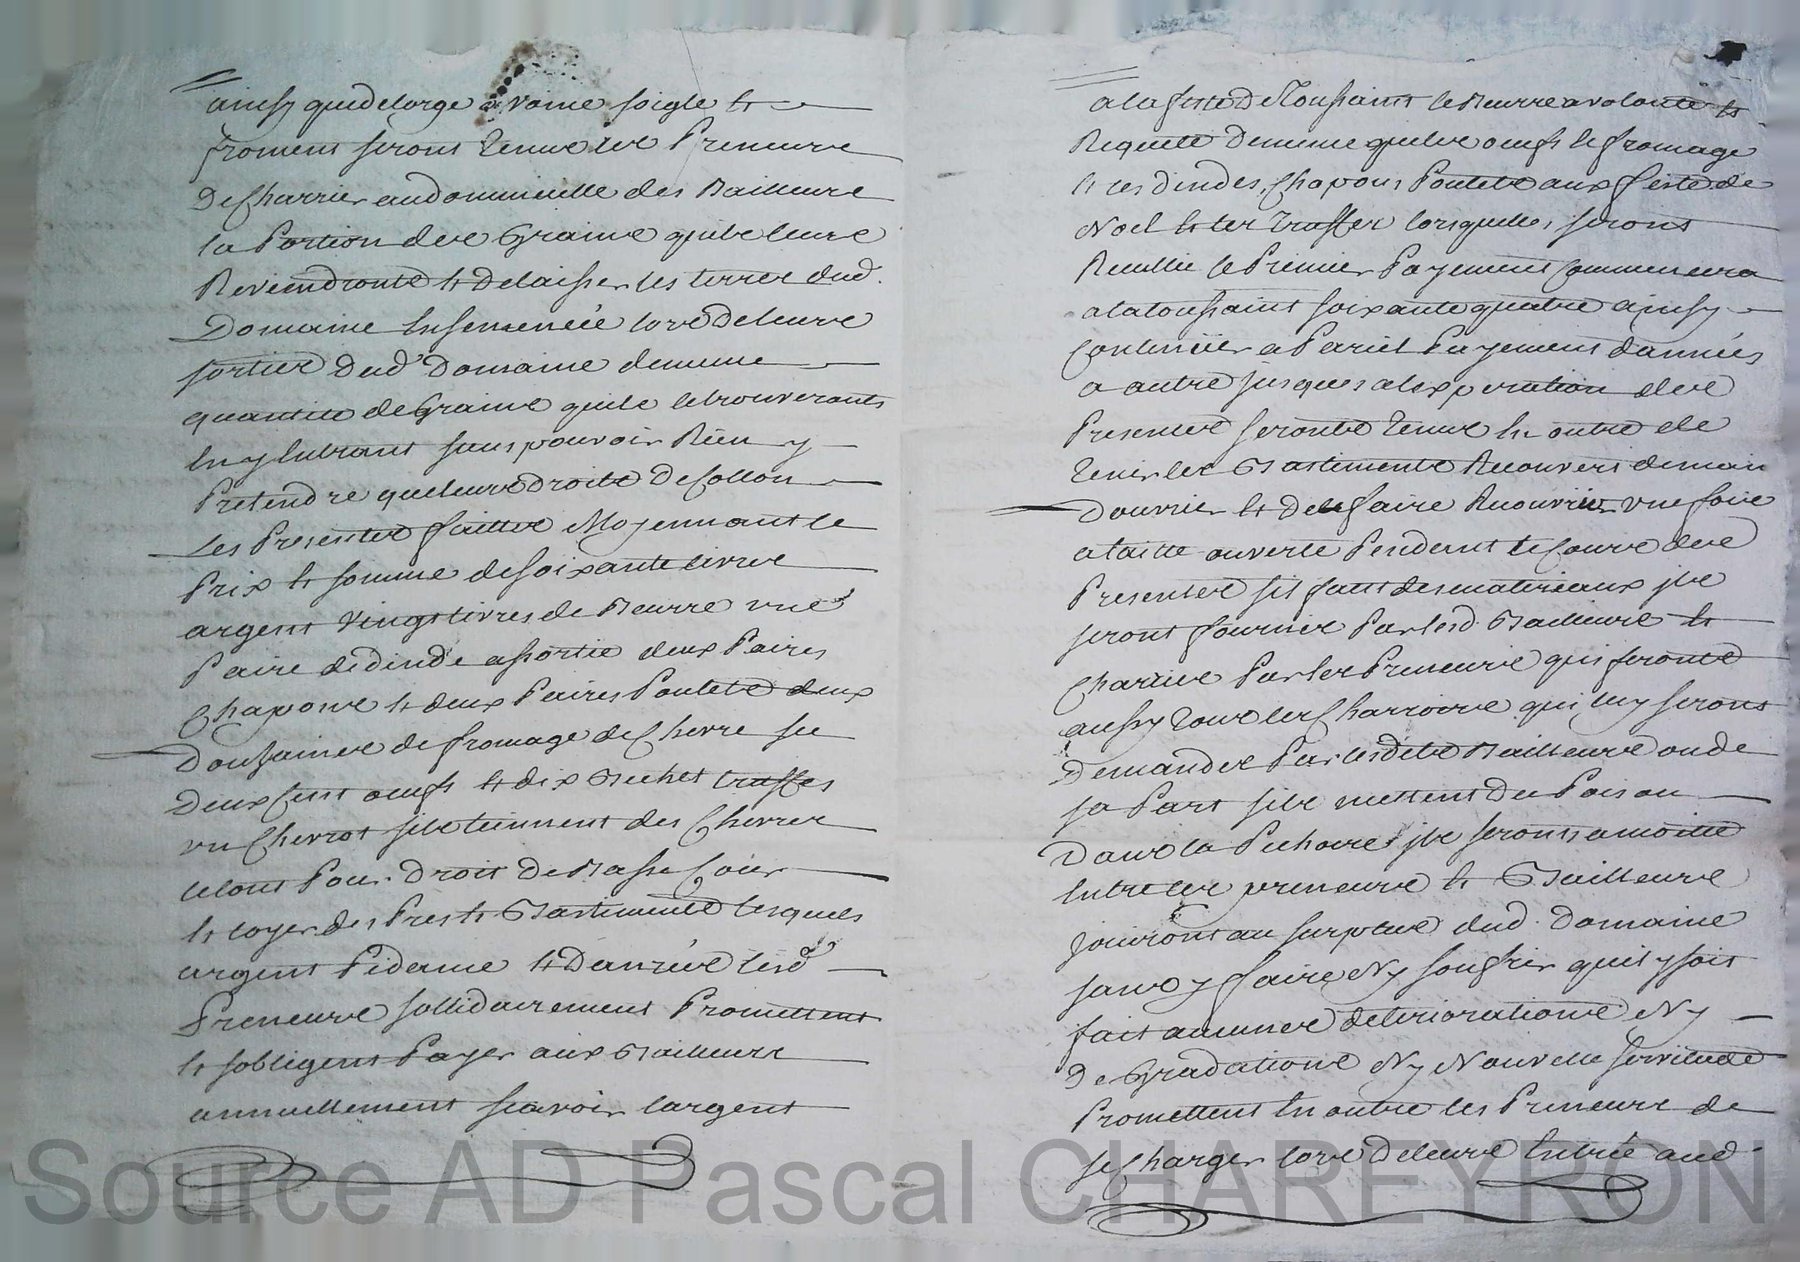 ainsy que delorge avoine soigle et
froment seront tenus les Preneurs
De Charrier au dommicille des Bailleurs
la Portion des Grains quils leurs
Reviendronts et Delaisser les terres dud.
Domaine Ensemencée lors De leurs
sortier Dud Domaine de meme
quantitté de Grains quils le trouveronts
En y Entrant sans pouvoir Rien y
Pretendre que leurs droits De Collon
Les Presentes faittes Moyennant le
Prix et somme de soixante livres
argent vingt livres de Beurre une
Paire de dinde assortie deux Paires
Chapons et deux Paires Poulets deux
Douzaines de fromage de Chevre
Deux Cent oeufs et dix Sechet truffes
un Chevrot sils tiennent des Chevres
le tout Pour Droit De Basse Cour
et loyer des Pres et Bastiments lesquels
argent Pidance et Danrées lesd
Preneurs sollidairement Promettent
et sobligent Payer aux Bailleurs
annuellement scavoir largent
a la feste De Toussaint le Beurre a volonté et
Requette De meme que les oeufs le fromage
et les dindes, Chapons Poulets aux feste de
Noel et les truffes lorsquelles seront
Reuillie le Premier Payement Commencera
a la toussaint soixante quatre ainsy
Continüer a Pariel Payement dannées
a autre jusques a lexpiration des
Presentes seronts tenus En outre de
tenir les Bastiments Recouvert de main
Douvrier et De les faire Recouvrir une fois
a taille ouverte Pendant le Cours des
Presentes sil faut des materiaux ils
seront fournis Par lesd. Bailleurs et
Charriés Par les Preneurs qui feronts
aussy tous les Charrois qui luy seront
Demandes Par lesdits Bailleurs ou de
sa Part sils mettent Du Poison
Dans la Pechoire ils seront a moitié
Entre les preneurs et Bailleurs
Jouiront au surplus dud. Domaine
sans y faire Ny souffrir quil y soit
fait aucunes deteriorations Ny
De Gradations Ny Nouvelle servitude
Promettent En outre les Preneurs de
se Charger lors De leurs Entrée aud.
Source AD Pascal CHAREYRON